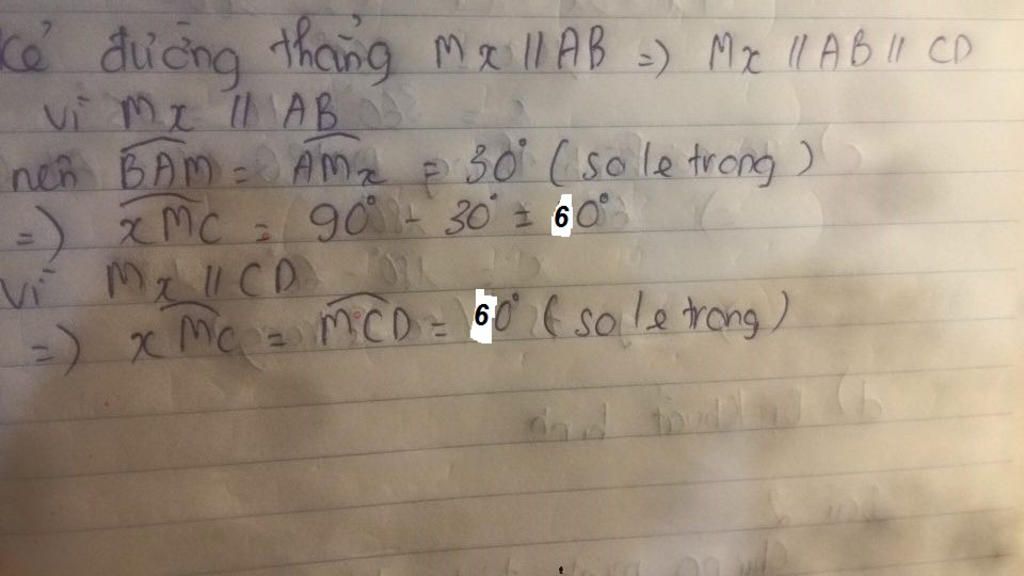 Kẻ đường thẳng Mx // AB => Mx // AB // CD
vì Mx // AB
nên BAM = AMx = 30° (so le trong)
=) xMC = 90° - 30° = 60°
Vì Mx // CD
=) xMC = MCD = 60° (so le trong)